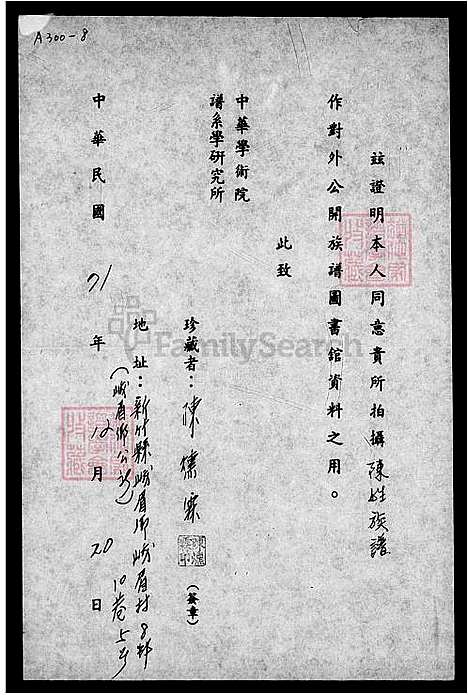 A300-8
茲證明本人同意貴所拍攝陳姓族譜
作對外公開族譜圖書館資料之用。
此致
中華學術院
譜系學研究所
珍藏者：陳 霖 (簽章)
地址：新竹縣峨眉鄉峨眉村8鄰
10巷5号
(峨眉鄉公所)
中華民國 71 年 12 月 20 日
FamilySearch